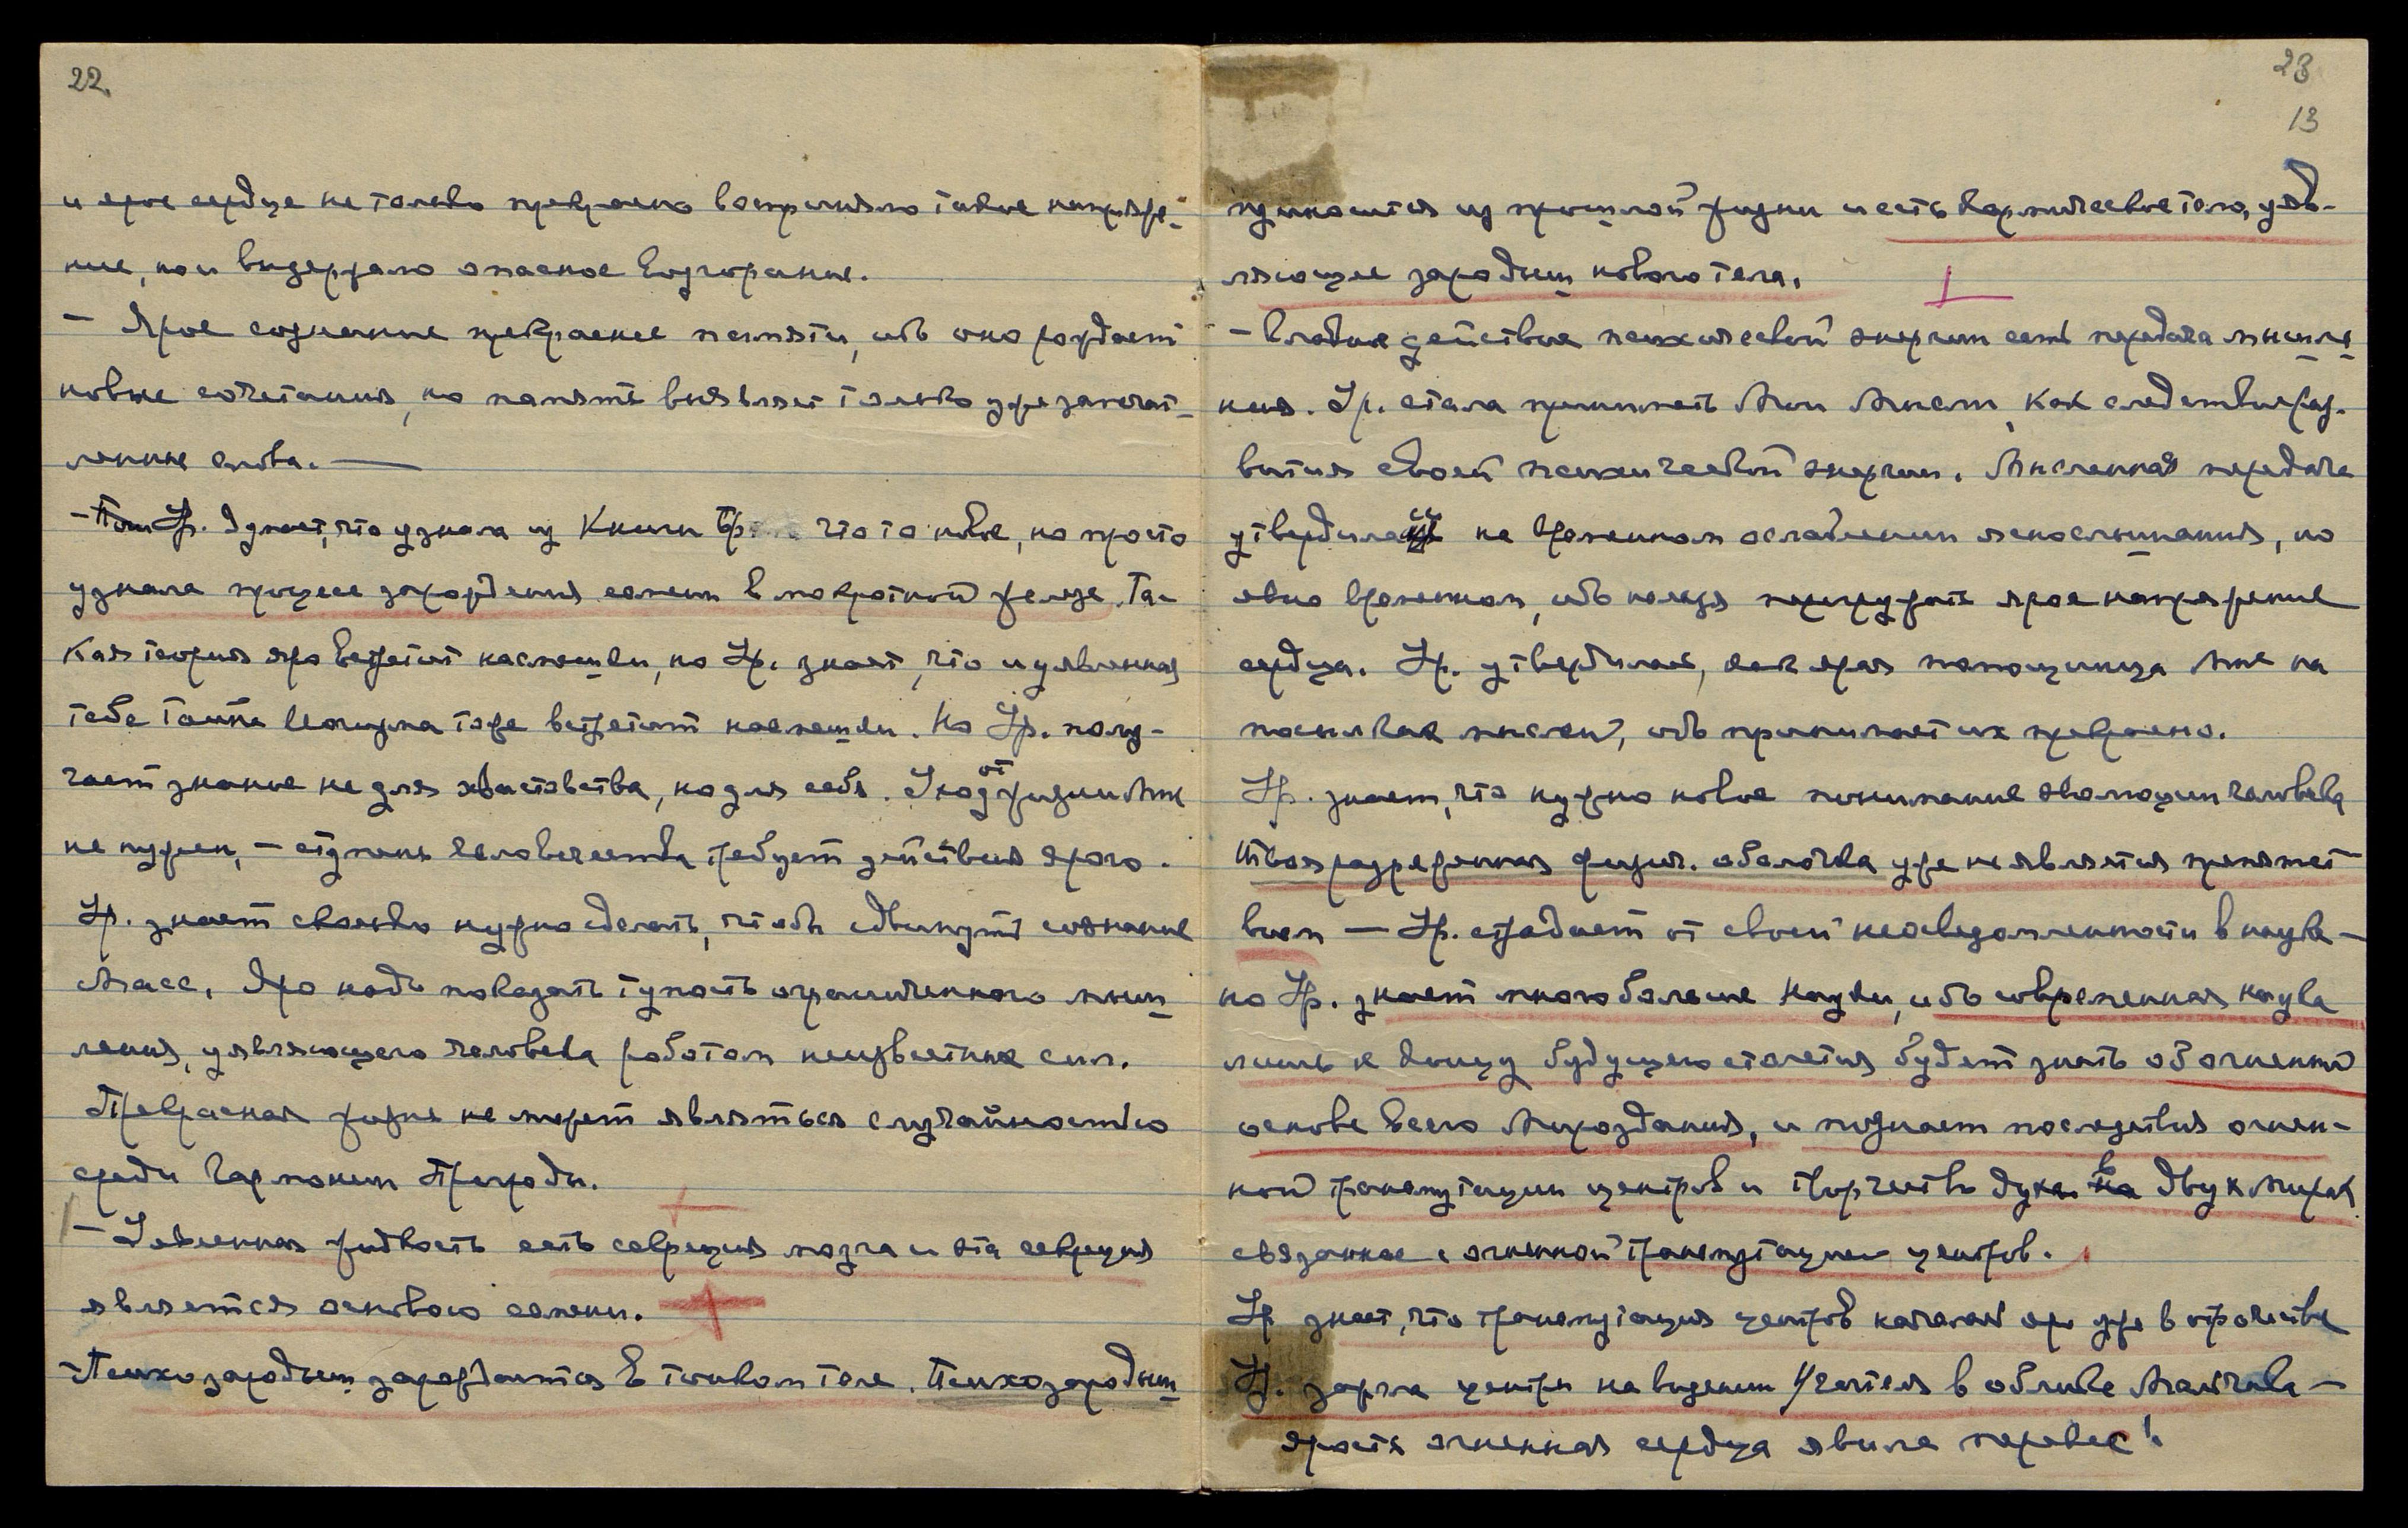 22.
и ярое сердце не только прекрасно восприняло такое напряже-
ние, но и выдержало опасное возгорание.
— Ярое сознание прекраснее памяти, ибо оно рождает
новые сочетания, но память выявляет только уже запечат-
ленные слова. —
— Ур. знает, что узнала из Книги что то новое, но просто
узнала процесс зарождения семени в мокротной железе. Та-
кая теория яро встретит насмешки, но Ур. знает, что и уявленная
тебе Тайна Космизма тоже встретит насмешки. Но Ур. полу-
чает знание не для хвастовства, но для себя. Уход от жизни Мне
не нужен, — стдтань человечества требует действия ярого.
Ур. знает сколько нужно сделать, чтобы сдвинуть сознание
масс. Яро надо показать тупость ограниченного мыш-
ления, уявляющего человека роботом неизвестных сил.
Прекрасная жизнь не может являться случайностью
среди Гармонии Природы.
— Уявленная жидкость есть секреция мозга и эта секреция
является основою семени.
— Психозародыш зарождается в тонком теле. Психозародыш
23
13
приносится из прошлой жизни и есть кармическое тело, уяв-
ляющее зародыш нового тела.
— Главное действие психической энергии есть передача мышле-
ния. Ур. стала принимать Мои Мысли, как следствие раз-
вития своей психической энергии. Мысленная передача
утвердилась на временном ослаблении яснослышания, но
явно временном, ибо нельзя перегружать ярое напряжение
сердца. Ур. утвердилась, как ярая помощница Мне на
посылках мыслей, ибо принимает их прекрасно.
Ур. знает, что нужно новое понимание эволюции человека
Твоя разреженная физич. оболочка уже не является препятст-
вием — Ур. страдает от своей неосведомленности в науке —
но Ур. знает много больше Науки, ибо современная наука
лишь к концу будущего столетия будет знать об огненной
основе всего Мироздания, и познает последствия огнен-
ной трансмутации центров и творчество духа в двух мирах
связанное с огненной трансмутацией центров.
Ур знает, что трансмутация центров началась яро уже в отрочестве
Ур. зажгла центры на видении Учителя в облике Мальчика —
ярость огненная сердца явила перевес!